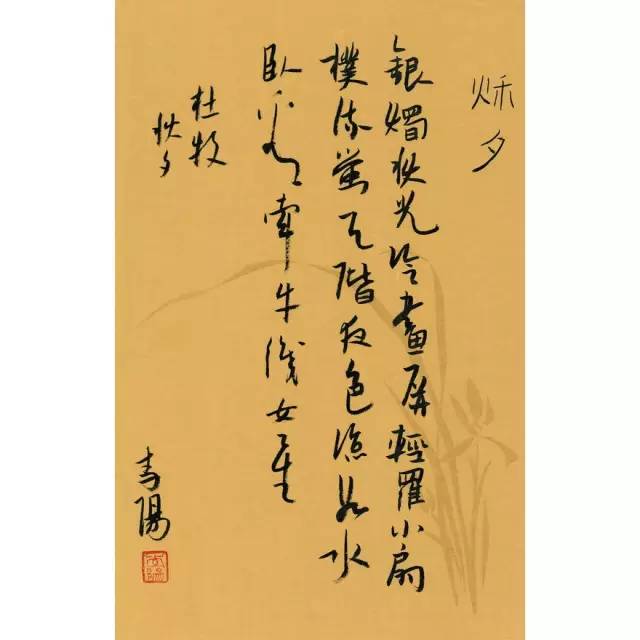 秌夕
銀燭秋光冷畫屏輕羅小扇
撲流螢天階夜色涼如水
臥看牽牛織女星
杜牧
秋夕
青陽